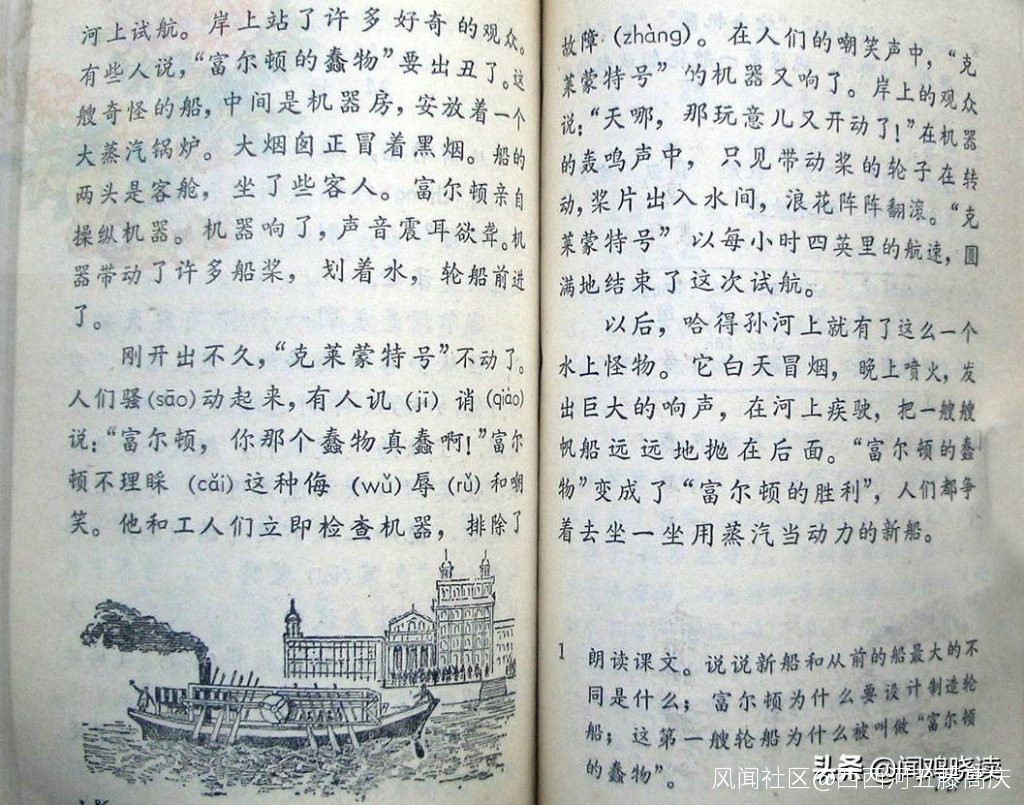 河上试航。岸上站了许多好奇的观众。
有些人说，“富尔顿的蠢物”要出丑了。这
艘奇怪的船，中间是机器房，安放着一个
大蒸汽锅炉。大烟囱正冒着黑烟。船的
两头是客舱，坐了些客人。富尔顿亲自
操纵机器。机器响了，声音震耳欲聋。机
器带动了许多船桨，划着水，轮船前进
了。
刚开出不久，“克莱蒙特号”不动了。
人们骚(sāo)动起来，有人讥(jī)诮(qiào)
说：“富尔顿，你那个蠢物真蠢啊！”富尔
顿不理睬(cǎi)这种侮(wǔ)辱(rǔ)和嘲
笑。他和工人们立即检查机器，排除了
故障(zhàng)。在人们的嘲笑声中，“克
莱蒙特号”的机器又响了。岸上的观众
说：“天哪，那玩意儿又开动了！”在机器
的轰鸣声中，只见带动桨的轮子在转
动，桨片出入水间，浪花阵阵翻滚。“克
莱蒙特号”以每小时四英里的航速，圆
满地结束了这次试航。
以后，哈得孙河上就有了这么一个
水上怪物。它白天冒烟，晚上喷火，发
出巨大的响声，在河上疾驶，把一艘艘
帆船远远地抛在后面。“富尔顿的蠢
物”变成了“富尔顿的胜利”，人们都争
着去坐一坐用蒸汽当动力的新船。
1 朗读课文。说说新船和从前的船最大的不
同是什么；富尔顿为什么要设计制造轮
船；这第一艘轮船为什么被叫做“富尔顿
的蠢物”。
头条 @闻鸡晓读
风闻社区@西西河五藤高庆